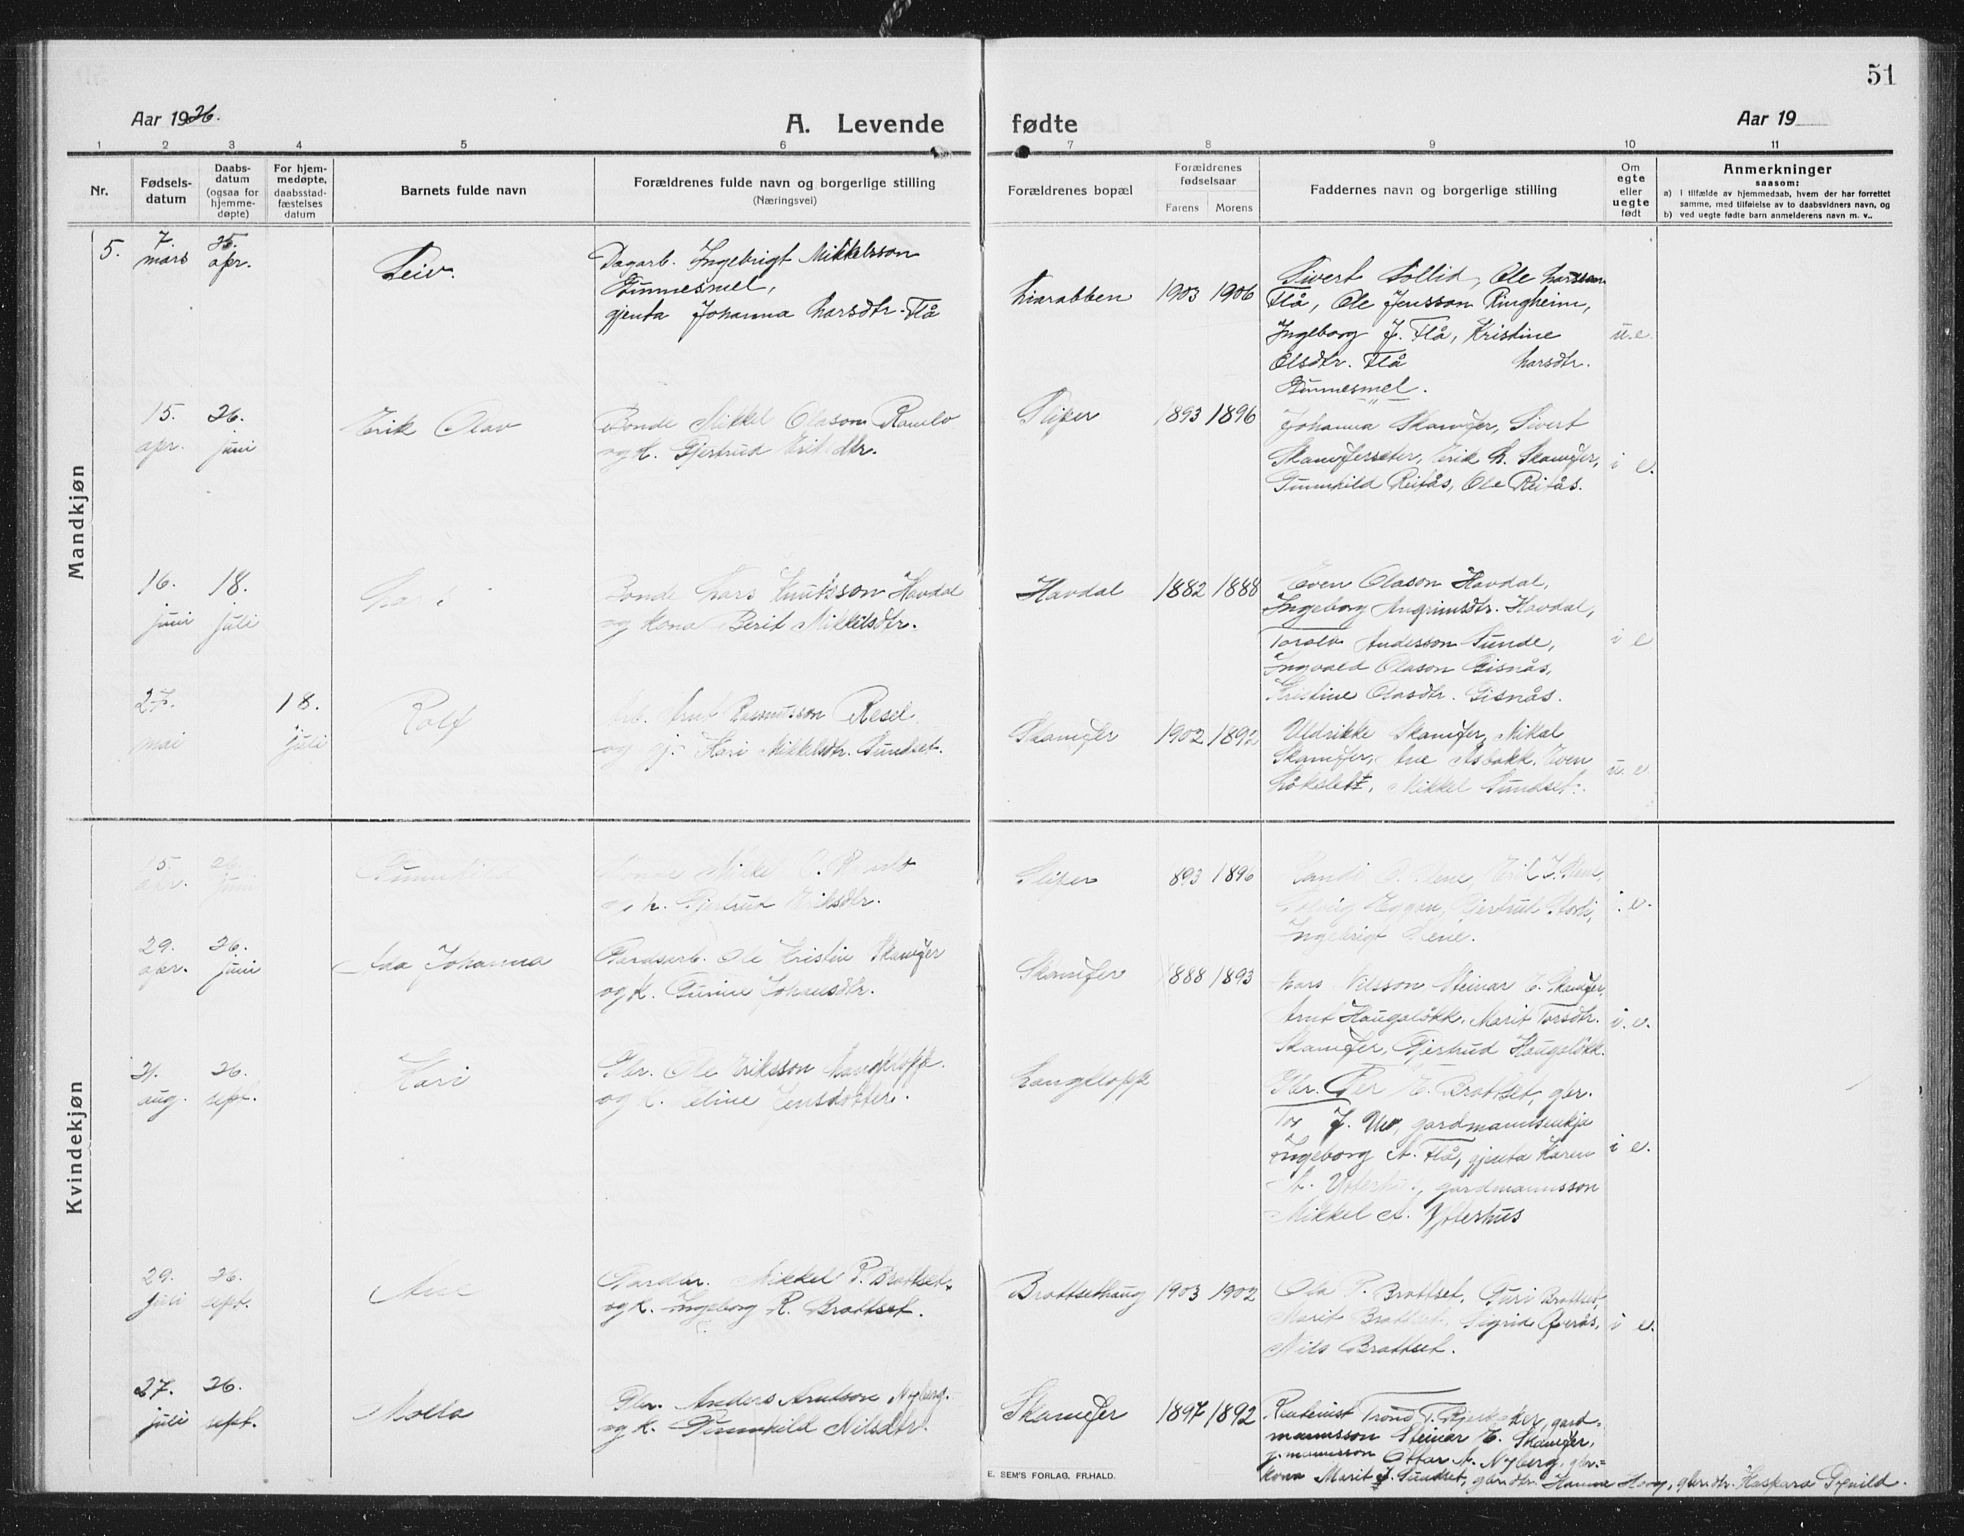 51
Aar 1926.
A. Levende
fødte
Aar 19
1 2 3 4 5 6 7 8 9 10 11
Nr.
Fødsels-
datum
Daabs-
datum
(ogsaa for
hjemme-
døpte)
For hjem-
medøpte,
daabsstad-
fæstelses
datum
Barnets fulde navn
Forældrenes fulde navn og borgerlige stilling
(Næringsvei)
Forældrenes bopæl
Forældrenes
fødselsaar
Farens Morens
Faddernes navn og borgerlige stilling
Om
egte
eller
uegte
født
Anmerkninger
saasom:
a) I tilfælde av hjemmedaab, hvem der har forrettet
samme, med tilføielse av to daabsvidners navn, og
b) ved uegte fødte barn anmelderens navn m. v..
Mandkjøn
5. 7. mars
25. apr.
Leiv.
Dagarb. Ingebrigt Mikkelsson
Gunnesmel,
gjenta Johanna Larsdtr. Flå
Liarabben 1903 1906
Sivert Sollid, Ole Larsson
Flå, Ole Jensson Ringheim,
Ingeborg J. Flå, Kristine
Olsdtr. Flå Larsdtr.
Gunnesmel.
u.e.
15. apr.
26. juni
Erik Olav
Bonde Mikkel Olason Ramlo
og k. Gjertrud Eriksdtr.
Sliper 1893 1896
Johanna Skamfer, Sivert
Skamfersæter, Erik L. Skamfer,
Gunnhild Reitås, Ole Reitås.
i e.
16. juni
18. juli
Lars
Bonde Lars Knutsson Havdal
og kona Berit Mikkelsdtr.
Havdal 1882 1888
Even Olason Havdal,
Ingeborg Angrimsdtr. Havdal,
Torolv Andersson Sunde,
Ingvald Olason Gisnås,
Kristine Olasdtr. Gisnås.
i e
27. mai
18. juli
Rolf
Arb. Arnt Rasmusson Resel
og gj. Kari Mikkelsdtr. Sundset.
Skamfer 1902 1892
Uldrikke Skamfer, Mikal
Skamfer, Ane Åsbakk, Even
Løkslett, Mikkel Sundset.
u. e.
Kvindekjøn
15. apr.
26. juni
Gunnhild
Bonde Mikkel O. Ramlo
og k. Gjertrud Eriksdtr.
Sliper 1893 1896
Ingebrigt Mene.
i. e.
29. apr.
26. juni
Ada Johanna
Ole Kristin Skamfer
og k. Gurine Johansdtr.
Skamfer 1888 1893
Lars Nilsson, Steinar E. Skamfer,
Arnt Haugaløkk, Marit Torsdtr.
Skamfer, Gjertrud Haugaløkk.
i. e.
31. aug.
26. sept.
Kari
Gbr. Ole Eriksson Langklopp.
og k. Eline Jensdotter.
Langklopp
Gbr. Per E. Brattset, gbr.
Tor J. Uv, gardmannsenkja
Ingeborg A. Flå, gjenta Karen
A. Ytterhus, gardmannsson
Mikkel A. Ytterhus
i e.
29. juli
26. sept.
Ane
Mikkel P. Brattset
og k. Ingeborg R. Brattset.
Brattsethaug 1903 1902
Ola P. Brattset, Guri Brattset,
Marit Brattset, Sigrid Øverås,
Nils Brattset.
i e.
27. juli
26. sept.
Molla
Gbr. Anders Arntson Nyberg.
og k. Gunnhild Nilsdtr.
Skamfer 1897 1892
Trond T. Bjerkaker, gard-
mannsson Steinar E. Skamfer,
g.mannsson Ottar A. Nyberg, gbr.-
kona Marit J. Sundset, gbr.dtr. Hanna Moog, gbr.dtr. Kaspara Tronild.
E. SEM'S FORLAG, FR.HALD.